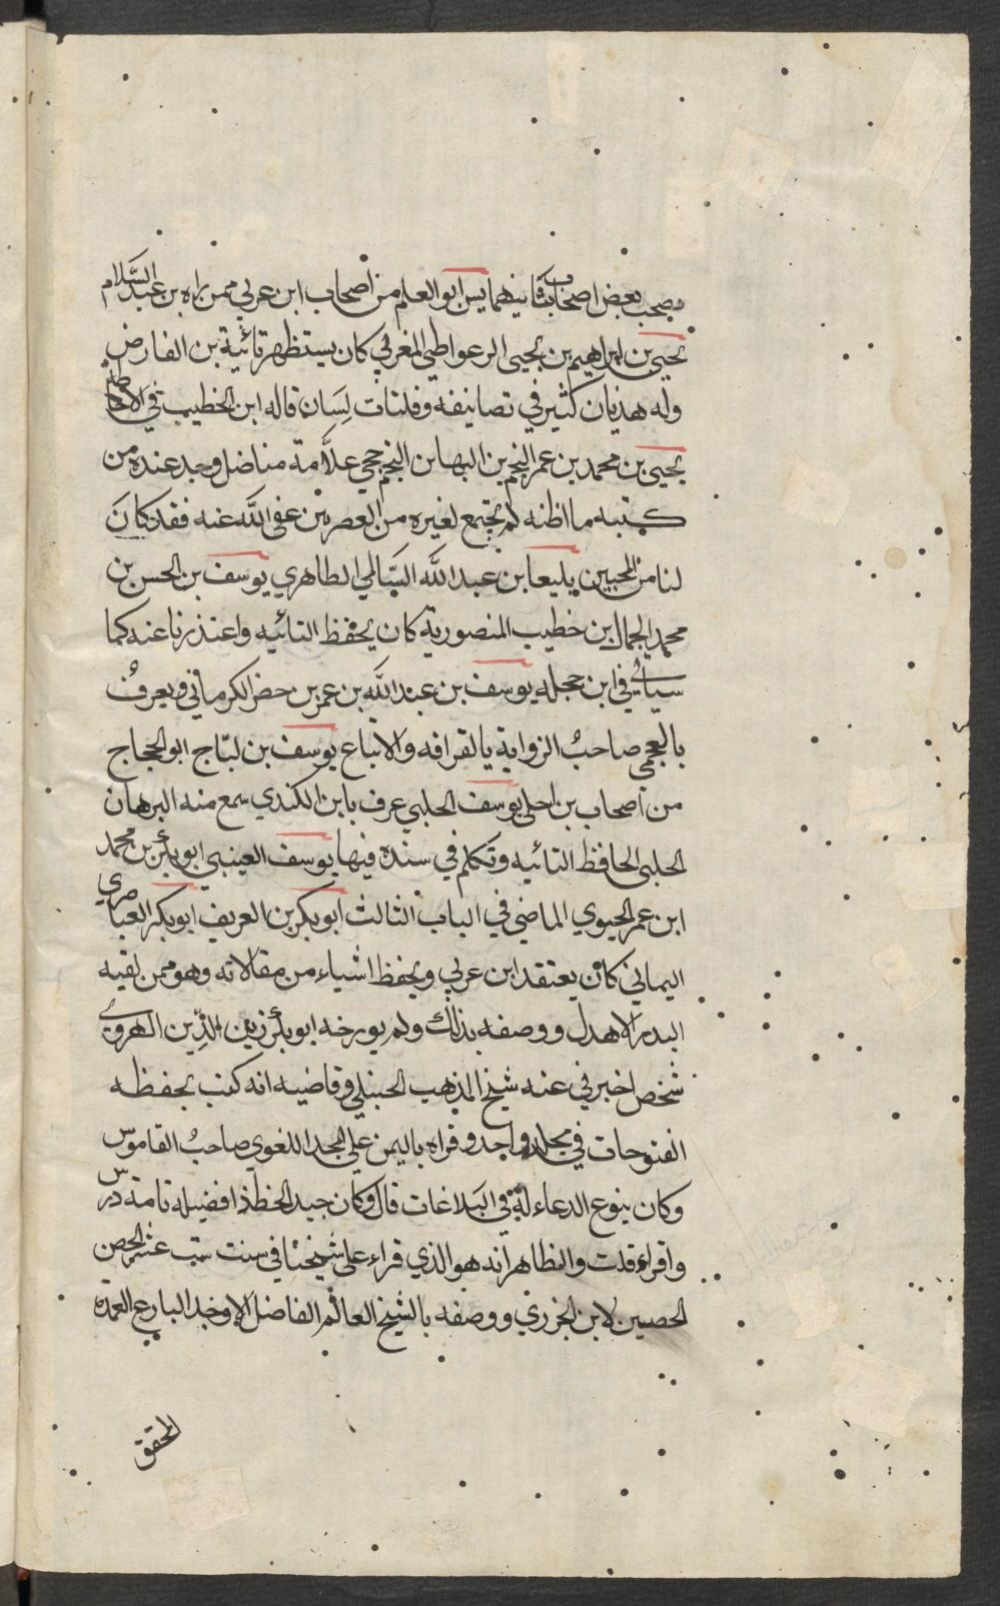 وصحب بعض اصحاب ثانيهما يس ابو العلم من اصحاب ابن عربي ممن راه بن عبد السلام
يحيى بن ابراهيم بن يحيى الرعواطي المغربي كان يستظهر تائية بن الفارض
وله هذيان كثير في تصانيفه وفلتات لسان قاله ابن الخطيب في الاحاطه
يحيى بن محمد بن عمر النجم بن البهابن النجم حجي علامة مناضل وجد عنده من
كتبه ما اظنه لم يجتمع لغيره من العصريين عفى الله عنه فقد كان
لنا من المحبين يليعا بن عبد الله السيالي الطاهري يوسف بن الحسن بن
محمد الجمال بن خطيب المنصورية كان يحفظ التائيه واعتذرنا عنه كما
سياتي في ابن حجله يوسف بن عبد الله بن عمر بن حضر الكرماني ويعرف
بالعجمي صاحب الزواية يالقرافه والاتباع يوسف بن لبتاج ابو الحجاج
من اصحاب بن احلى يوسف الحلبي عرف بابن الكندي سمع منه البرهان
الحلبي الحافظ التائيه وتكلم في سنده فيها يوسف العينبي ابو بكر بن محمد
ابن عمر الحيوي الماضي في الباب الثالث ابو بكر بن العريف ابو بكر العباصري
اليماني كان يعتقد ابن عربي ويحفظ اشياء من مقالاته وهو ممن لقيه
البدر الاهدل ووصفه بذلك ولم يورخه ابو بكر زين الدين الهروي
شخص اخبرني عنه شيخ المذهب الحنبلي وقاضيه انه كتب بحفظه
الفتوحات في مجلد واحد وقراه باليمن على المجد اللغوي صاحب القاموس
وكان ينوع الدعاء له في البلاغات قال وكان جيد الخط ذا فضيله تامة درس
واقراء قلت والظاهر انه هو الذي قراء على شيخنا في سنت ست عشر الحصن
الحصين لابن الجزري ووصفه بالشيخ العالم الفاضل الاوحد البارع العمدة
المحقق